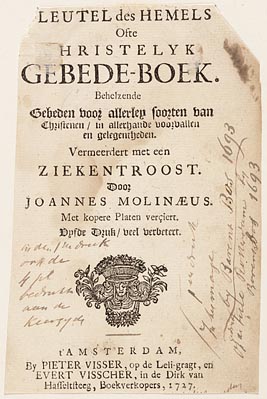 LEUTEL des HEMELS
Ofte
HRISTELYK
GEBEDE-BOEK.
Behelzende
Gebeden voor allerley soorten van
Christenen / in allerhande voorvallen
en gelegentheden.
Vermeerdert met een
ZIEKENTROOST.
Door
JOANNES MOLINÆUS.
Met kopere Platen verçiert.
Vyfde Druk / veel verbetert.
t'AMSTERDAM,
By PIETER VISSER, op de Leli-gragt, en
EVERT VISSCHER, in de Dirk van
Hasseltsteeg, Boekverkopers, 1727.
druk
ook de
4 pl
aan de
1693
1693